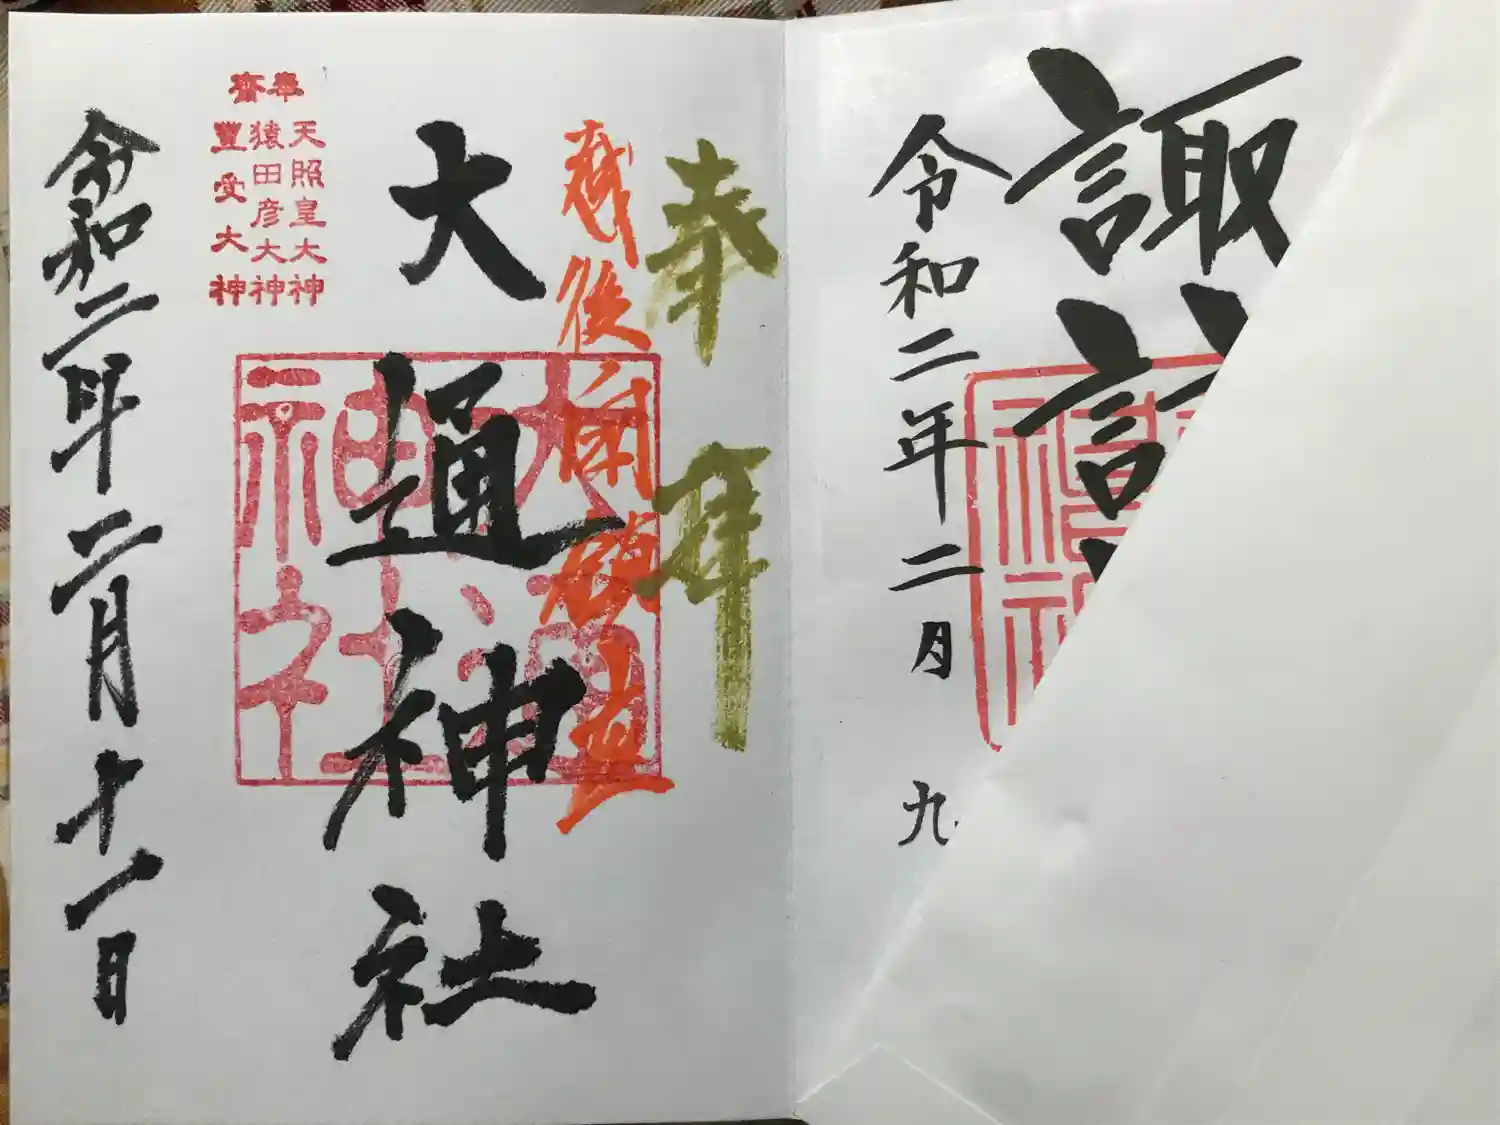 諏
令和二年二月九
奉拝
越後
大通神社
大通神社
奉齋
天照皇大神
猿田彦大神
豐受大神
令和二年二月十一日